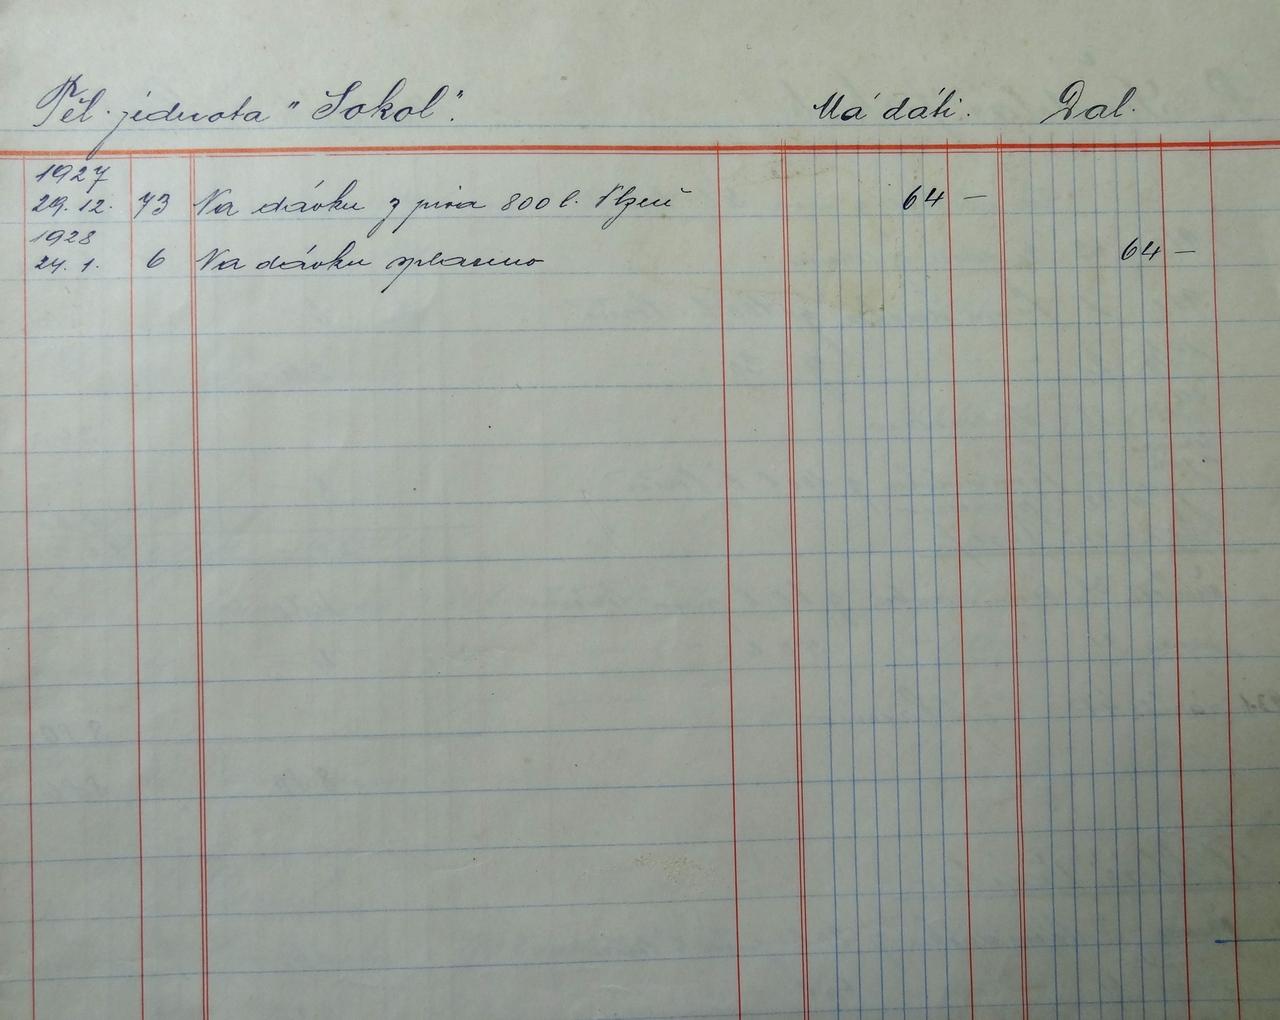 Těl. jednota "Sokol". Má dáti. Dal.
1927
29. 12. 73 Na dávku z piva 800 l. Plzeň 64 —
1928
24. 1. 6 Na dávku splaceno 64 —